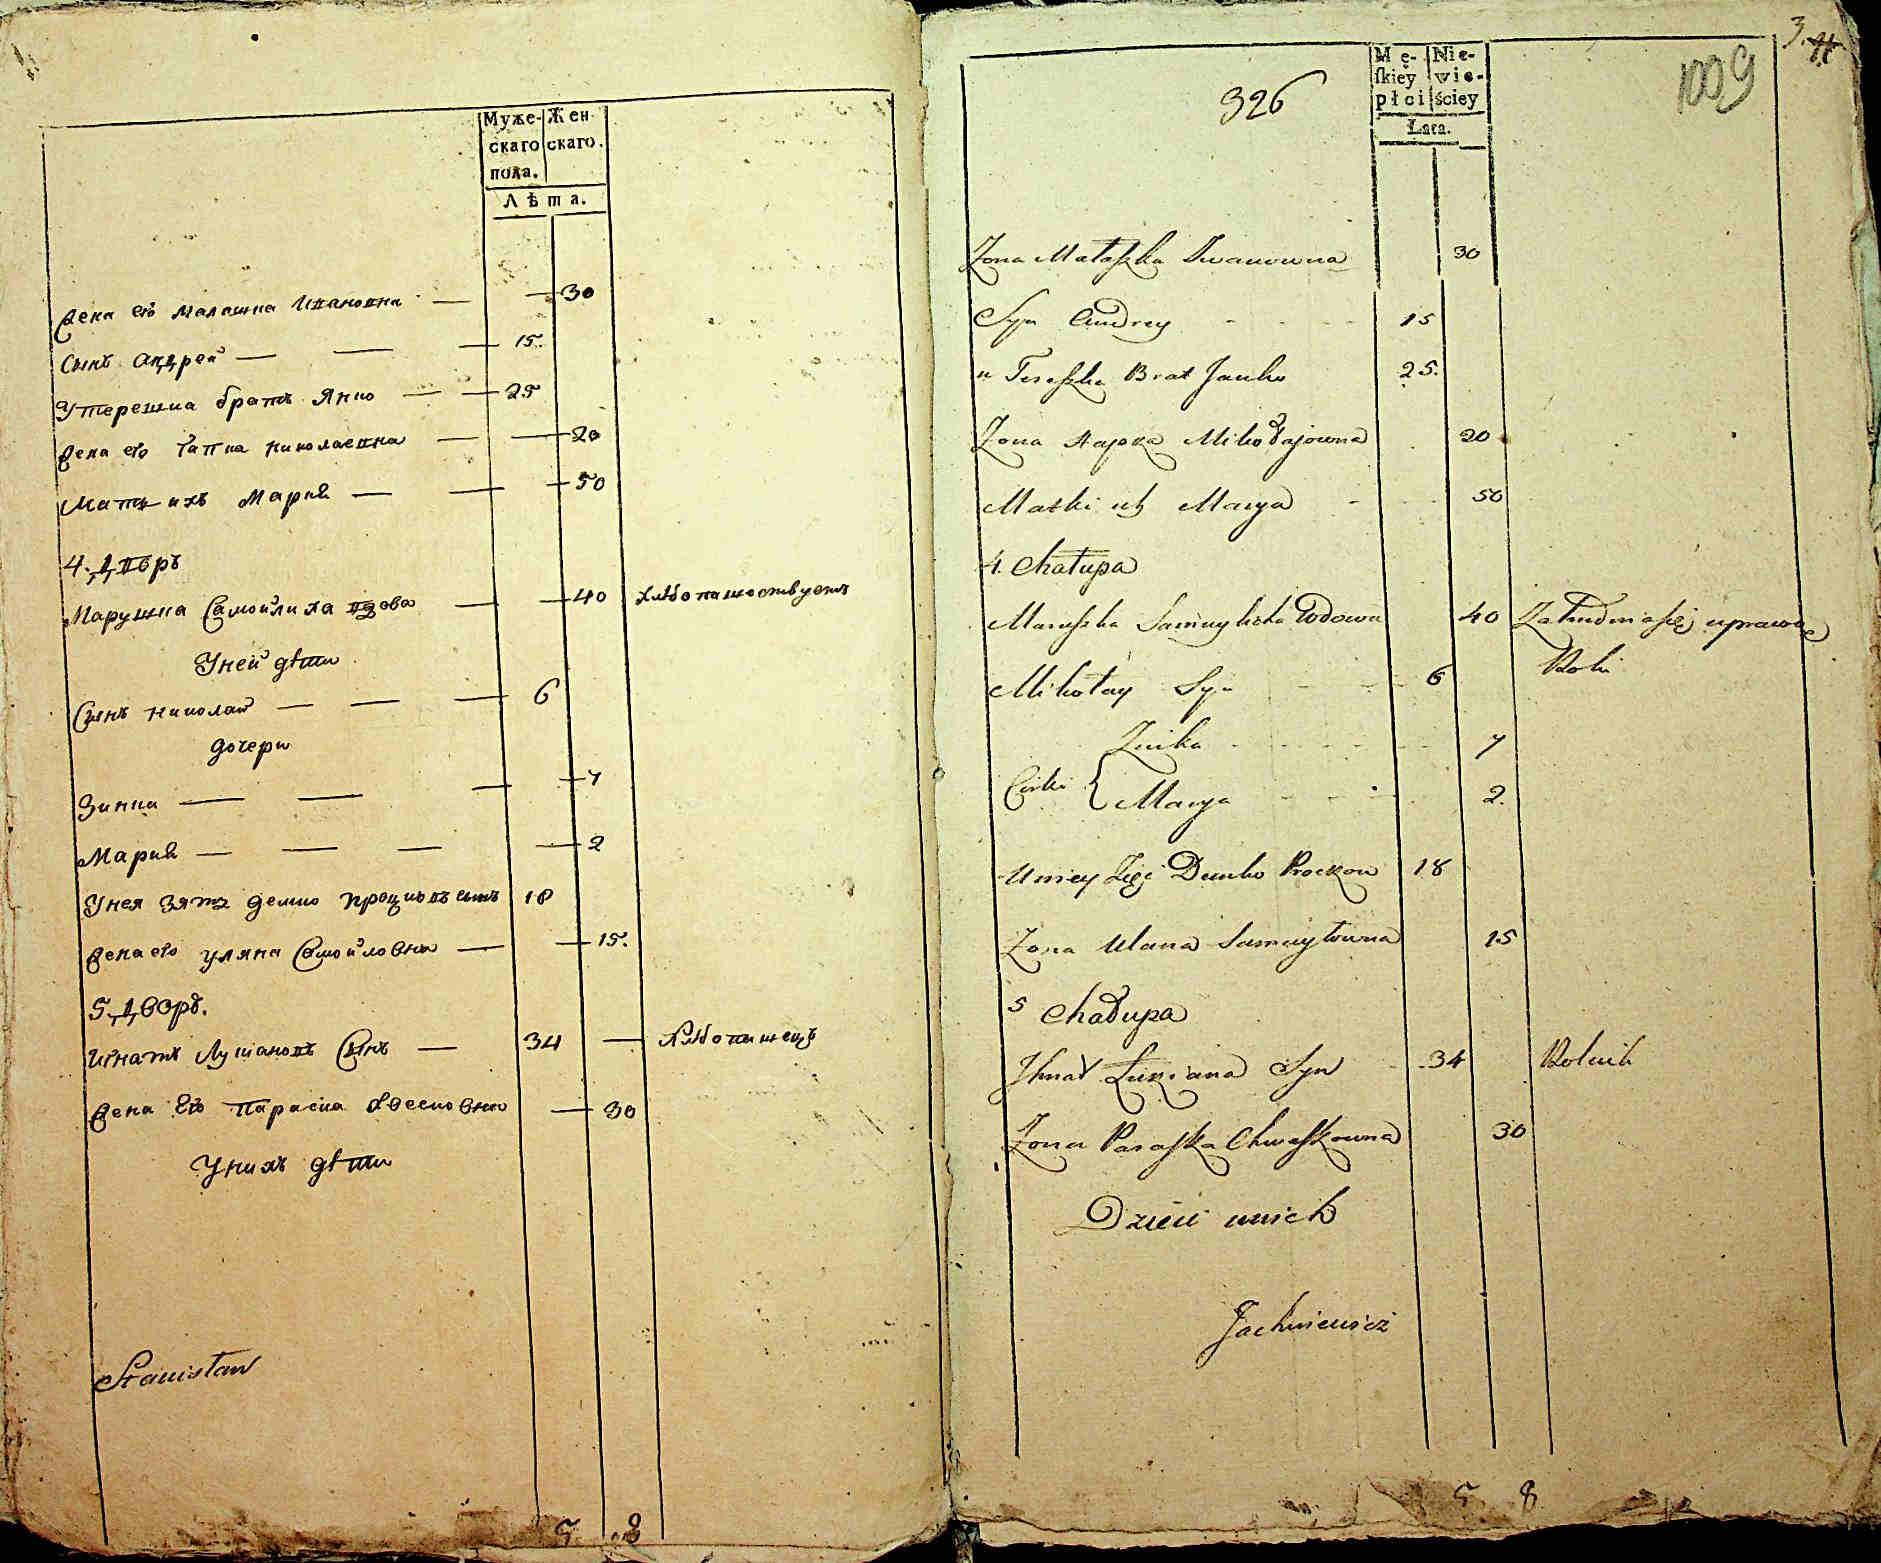 Муже-
скаго
пола.
Жен
скаго.
Лѣта.
Жена его Малашка Ивановна — — 30
Сынъ Андрей — — — 15.
У терешка братъ Янко — — 25
Жена его Гапка Николаевна — — 20
Мать ихъ Мария — — — 50
4. Дворъ
Марушка Самойлиха вдова — — 40 хлѣбопашествуетъ
У ней дѣти
Сынъ Николай — — — 6
дочери
Зинка — — — 7
Мария — — — — 2
У нея зять демко Процковъ сынъ 18
Жена его Уляна Самойловна — — 15.
5. Дворъ.
Игнатъ Лукіановъ Сынъ — 34 — Хлѣбопашецъ
Жена Его Параска Хвесковна — 30
У нихъ дѣти
Stanisław
5 8
3.
1009
326
Mę-
skiey
płci
Nie-
wie-
ściey
Łata.
Zona Małaszka Iwanowna 30
Syn Andrey 15
u Tereszka Brat Janko 25.
Zona Hapka Mikołajowna 20
Matki ich Marya 50
4. Chałupa
Maruszka Samuylicha Wdowa 40 Zatrudnia się uprawą
Roli
Mikołay Syn 6
Zinka 7
Corki { Marya 2.
U niey Zięć Demko Prockow 18
Zona Ulana Samuyłowna 15
5 Chałupa
Ihnat Łukiana Syn 34 Rolnik
Zona Paraska Chweskowna 30
Dzieci u nich
Jachniewicz
5 8